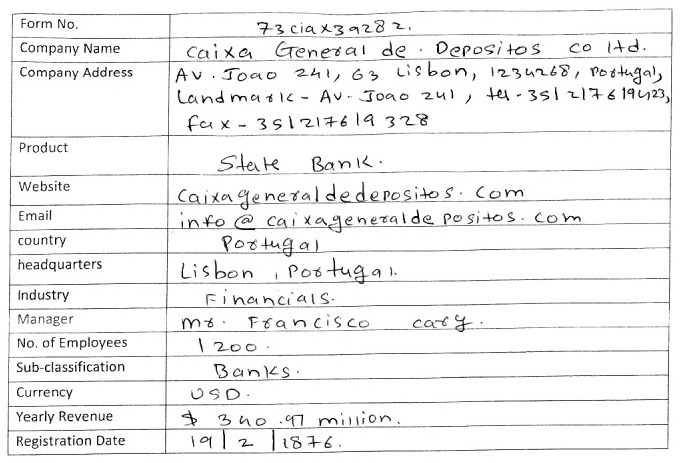 Form No. 73ciax39282.
Company Name Caixa General de. Depositos co ltd.
Company Address Av. Joao 241, 63 Lisbon, 1234268, Portugal,
Landmark - Av. Joao 241, tel-351217619423,
fax - 351217619328
Product State Bank.
Website Caixageneraldedepositos.com
Email info@caixageneraldepositos.com
country Portugal
headquarters Lisbon, Portugal.
Industry Financials.
Manager mr. Francisco cary.
No. of Employees 1200.
Sub-classification Banks.
Currency USD.
Yearly Revenue $ 340.97 million.
Registration Date 19/2/1876.